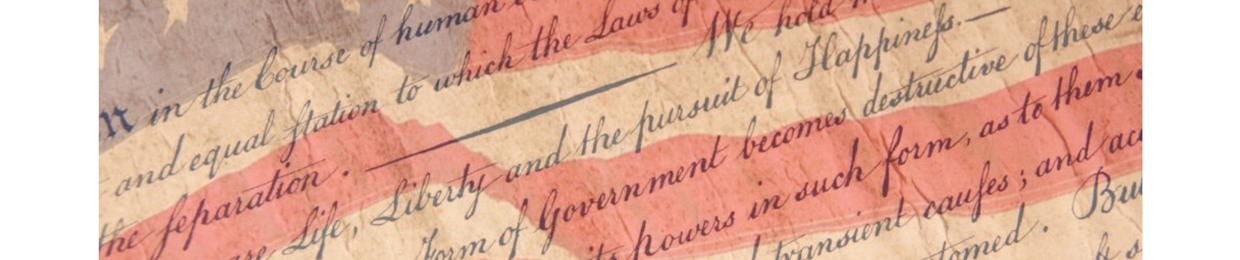 n in the Course of human
and equal ſtation to which the Laws of
the ſeparation. — We hold
Life, Liberty and the pursuit of Happineſs. —
Form of Government becomes destructive of these
its powers in such form, as to them
transient cauſes; and
tomed. But